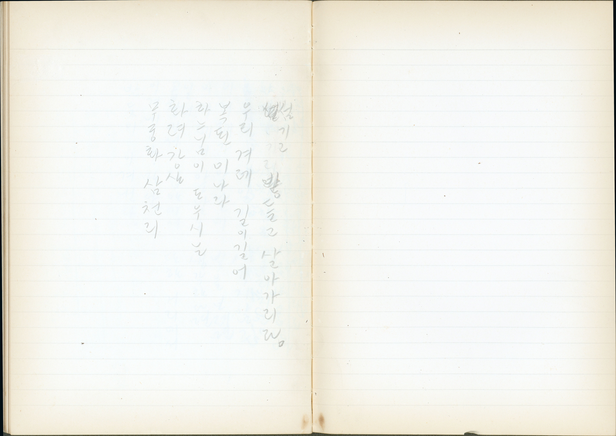 섬기고
받들고 살아가리라
우리 겨레 길이길이
복된 이 나라
하느님이 도우시는
화려강산
무궁화 삼천리